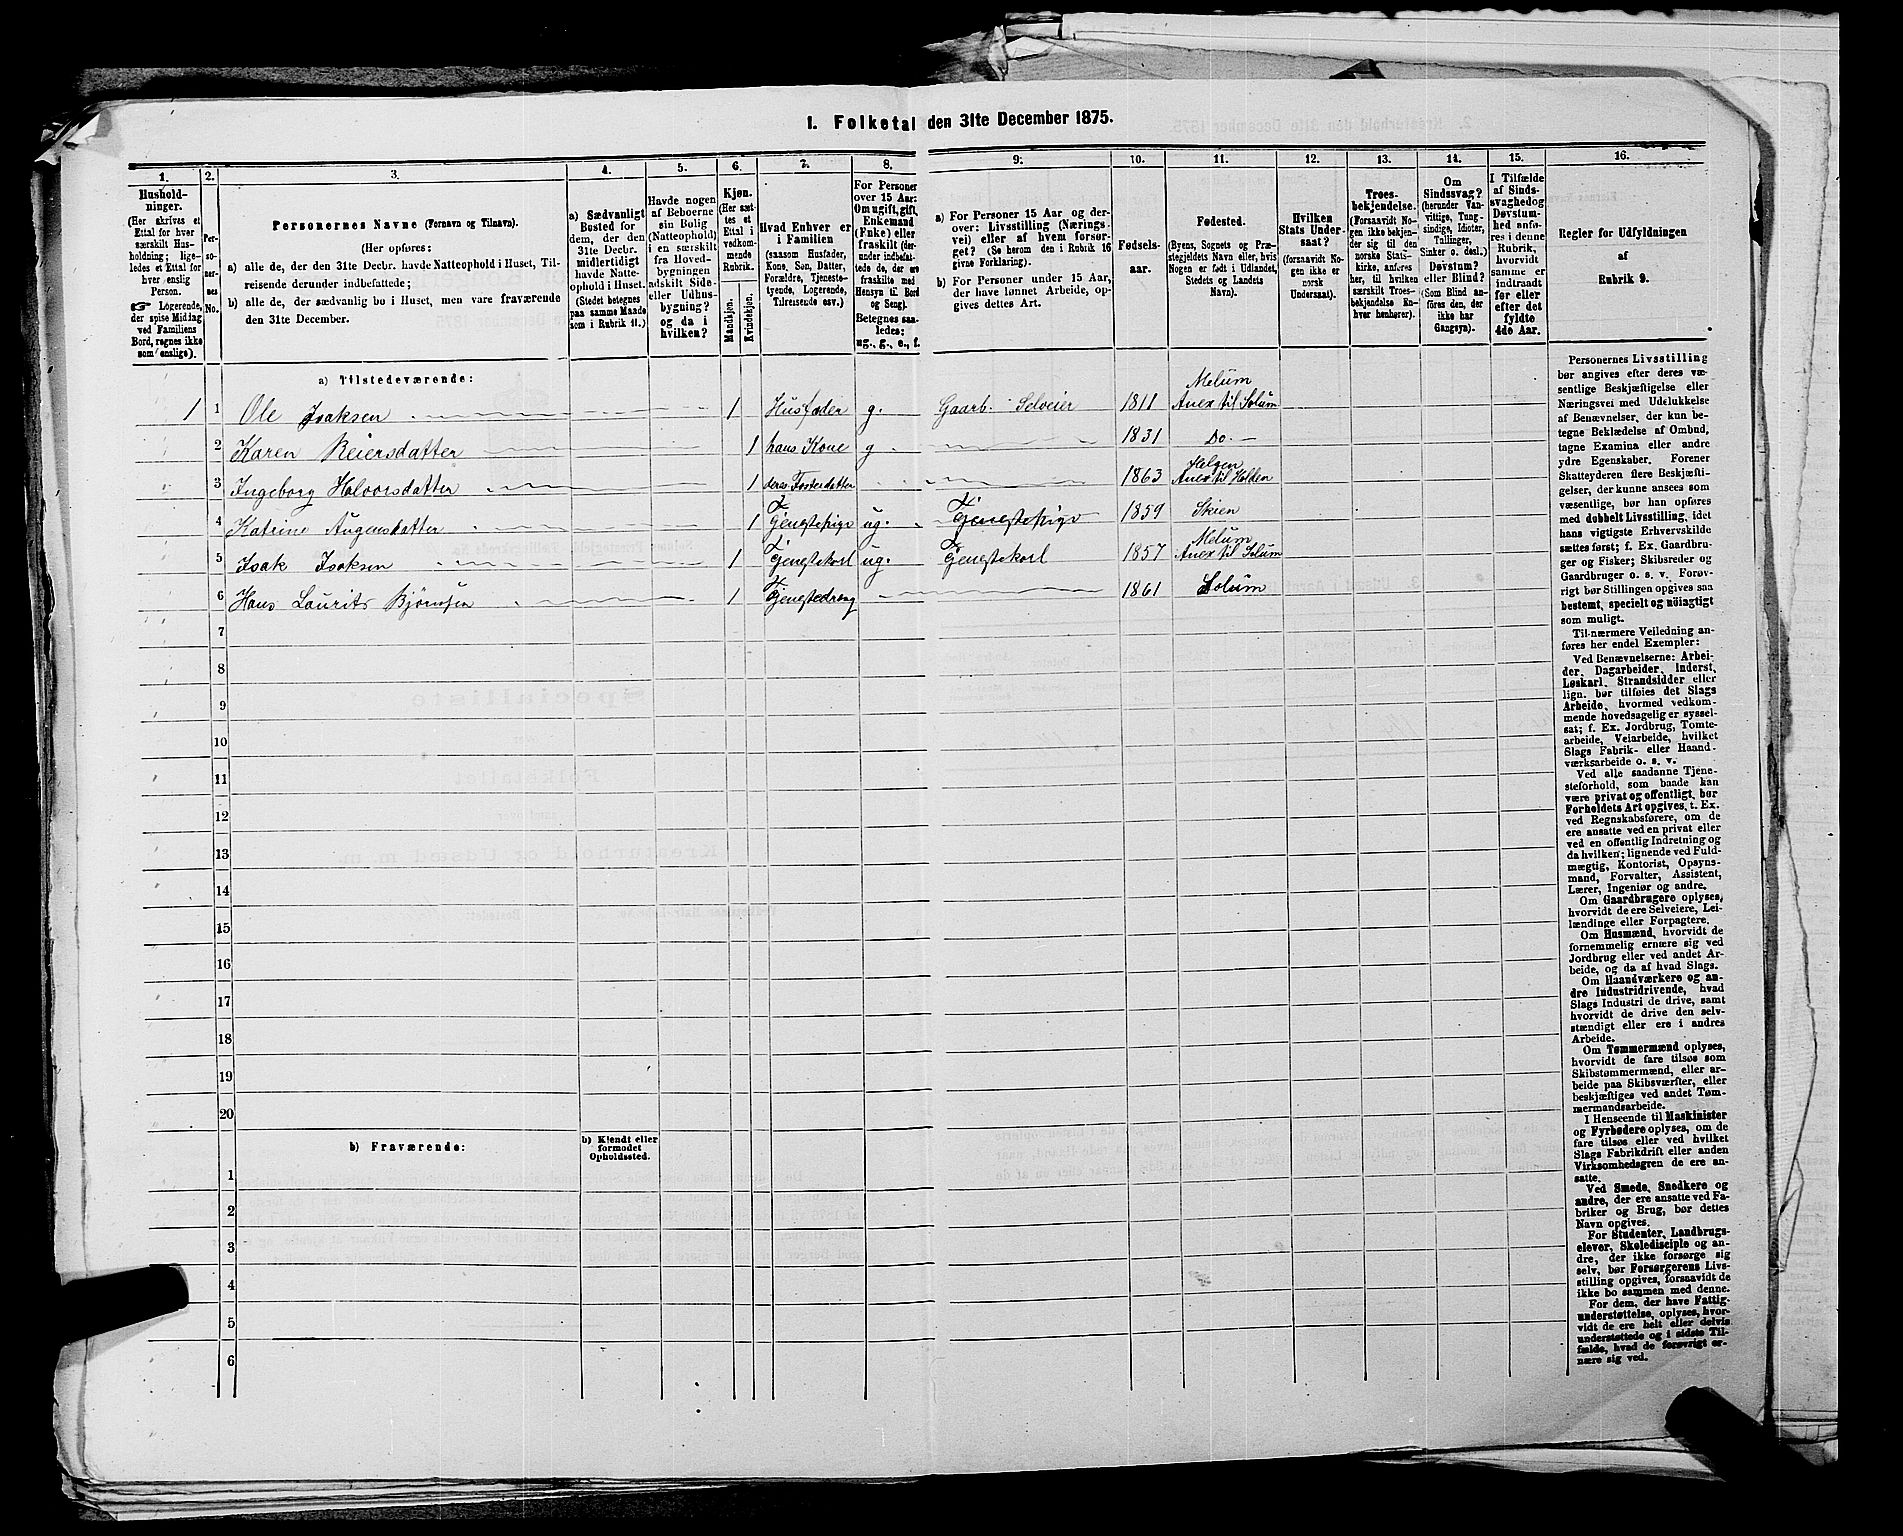 1. Folketal den 31te December 1875.
1. 2. 3. 4. 5. 6. 7. 8. 9. 10. 11. 12. 13. 14. 15. 16.
Hushold-
ninger.
(Her skrives et
Ettal for hver
særskilt Hus-
holdning; lige-
ledes et Ettal for
hver enslig
Person.
☞ Logerende,
der spise Middag
ved Familiens
Bord, regnes ikke
som enslige).
Per-
so-
ner-
nes
No.
Personernes Navne (Fornavn og Tilnavn).
(Her opføres:
a) alle de, der den 31te Decbr. havde Natteophold i Huset, Til-
reisende derunder indbefattede;
b) alle de, der sædvanlig bo i Huset, men vare fraværende
den 31te December.
a) Sædvanligt
Bosted for
dem, der den
31te Decbr.
midlertidigt
havde Natte-
ophold i Huset.
(Stedet betegnes
paa samme Maade
som i Rubrik 11.)
Havde nogen
af Beboerne
sin Bolig
(Natteophold)
i en særskilt
fra Hoved-
bygningen
adskilt Side-
eller Udhus-
bygning?
og da i
hvilken?
Kjøn.
(Her sæt-
tes et
Ettal i
vedkom-
mende
Rubrik.
Mandkjøn.
Kvindekjøn.
Hvad Enhver er
i Familien
(saasom Husfader,
Kone, Søn, Datter,
Forældre, Tjeneste-
tyende, Logerende,
Tilreisende osv.)
For Personer
over 15 Aar:
Om ugift, gift,
Enkemand
(Enke) eller
fraskilt (der-
under indbefat-
tede de, der ere
fraskilte med
Hensyn til Bord
og Seng).
Betegnes saa-
ledes:
ug., g., e., f.
a) For Personer 15 Aar og der-
over: Livsstilling (Nærings-
vei) eller af hvem forsør-
get? (Se herom den i Rubrik 16
givne Forklaring).
b) For Personer under 15 Aar,
der have lønnet Arbeide, op-
gives dettes Art.
Fødsels-
aar.
Fødested.
(Byens, Sognets og Præ-
stegjeldets Navn eller, hvis
Nogen er født i Udlandet,
Stedets og Landets
Navn).
Hvilken
Stats Under-
saat?
(forsaavidt No-
gen ikke er
norsk
Undersaat).
Troes-
bekjendelse.
(Forsaavidt No-
gen ikke bekjen-
der sig til den
norske Stats-
kirke, anføres
her, til hvilken
særskilt Troes-
bekjendelse En-
hver henhører).
Om
Sindssvag?
(herunder Van-
vittige, Tung-
sindige, Idioter,
Tullinger,
Sinker o. desl.)
Døvstum?
eller Blind?
(Som Blind an-
føres den, der
ikke har
Gangsyn).
I Tilfælde
af Sinds-
svaghed og
Døvstum-
hed anfø-
res i denne
Rubrik,
hvorvidt
samme er
indtraadt
før eller
efter det
fyldte
4de Aar.
Regler for Udfyldningen
af
Rubrik 9.
a) Tilstedeværende:
1 1 Ole Isaksen 1 Husfader g. Gaarb. Selveier 1811 Melum Anex til Solum
2 Karen Reiersdatter 1 hans Kone g 1831 Do.
3 Ingeborg Halvorsdatter 1 deres Fosterdatter 1863 Helgen Anex til Holden
4 Katrine Augensdatter 1 Tjenestepige ug. Tjenestepige 1859 Skien
5 Isak Isaksen 1 Tjenestekarl ug. Tjenestekarl 1857 Melum Anex til Solum
6 Hans Laurits Bjørnsen 1 Tjenestedreng 1861 Solum
7
8
9
10
11
12
13
14
15
16
17
18
19
20
b) Fraværende:
b) Kjendt eller
formodet
Opholdssted.
1
2
3
4
5
6
Personernes Livsstilling
bør angives efter deres væ-
sentlige Beskjæftigelse eller
Næringsvei med Udelukkelse
af Benævnelser, der kun be-
tegne Beklædelse af Ombud,
tagne Examina eller andre
ydre Egenskaber. Forener
Skatteyderen flere Beskjæfti-
gelser, der kunne ansees som
væsentlige, bør han opføres
med dobbelt Livsstilling, idet
hans vigtigste Erhvervskilde
sættes først; f. Ex. Gaardbru-
ger og Fisker; Skibsreder og
Gaardbruger o. s. v. Forøv-
rigt bør Stillingen opgives saa
bestemt, specielt og nöiagtigt
som muligt.
Til nærmere Veiledning an-
føres her endel Exempler:
Ved Benævnelserne: Arbei-
der, Dagarbeider, Inderst,
Løskarl, Strandsidder eller
lign. bør tilføies det Slags
Arbeide, hvormed vedkom-
mende hovedsagelig er syssel-
sat; f. Ex. Jordbrug, Tomte-
arbeide, Veiarbeide, hvilket
Slags Fabrik- eller Haand-
værksarbeide o. s. v.
Ved alle saadanne Tjene-
steforhold, som baade kan
være privat og offentligt, bør
Forholdets Art opgives, t. Ex.
ved Regnskabsførere, om de
ere ansatte ved en privat eller
ved en offentlig Indretning og
da hvilken; lignende ved Fuld-
mægtig, Kontorist, Opsyns-
mand, Forvalter, Assistent,
Lærer, Ingeniør og andre.
Om Gaardbrugere oplyses,
hvorvidt de ere Selveiere, Lei-
lændinge eller Forpagtere.
Om Husmænd, hvorvidt de
fornemmelig ernære sig ved
Jordbrug eller ved andet Ar-
beide, og da af hvad Slags.
Om Haandværkere og an-
dre Industridrivende, hvad
Slags Industri de drive, samt
hvorvidt de drive den selv-
stændigt eller ere i andres
Arbeide.
Om Tømmermænd oplyses,
hvorvidt de fare tilsøs som
Skibstømmermænd, eller ar-
beide paa Skibsværfter, eller
beskjæftiges ved andet Tøm-
mermandsarbeide.
I Henseende til Maskinister
og Fyrbødere oplyses, om de
fare tilsøs eller ved hvilket
Slags Fabrikdrift eller anden
Virksomhedsgren de ere an-
satte.
Ved Smede, Snedkere og
andre, der ere ansatte ved Fa-
briker og Brug, bør dettes
Navn opgives.
For Studenter, Landbrugs-
elever, Skoledisciple og an-
dre, der ikke forsørge sig
selv, bør Forsørgerens Livs-
stilling opgives, forsaavidt de
ikke bo sammen med denne.
For dem, der have Fattig-
understøttelse, oplyses, hvor-
vidt de ere helt eller delvis
understøttede og i sidste Til-
fælde, hvad de forøvrigt er-
nære sig ved.